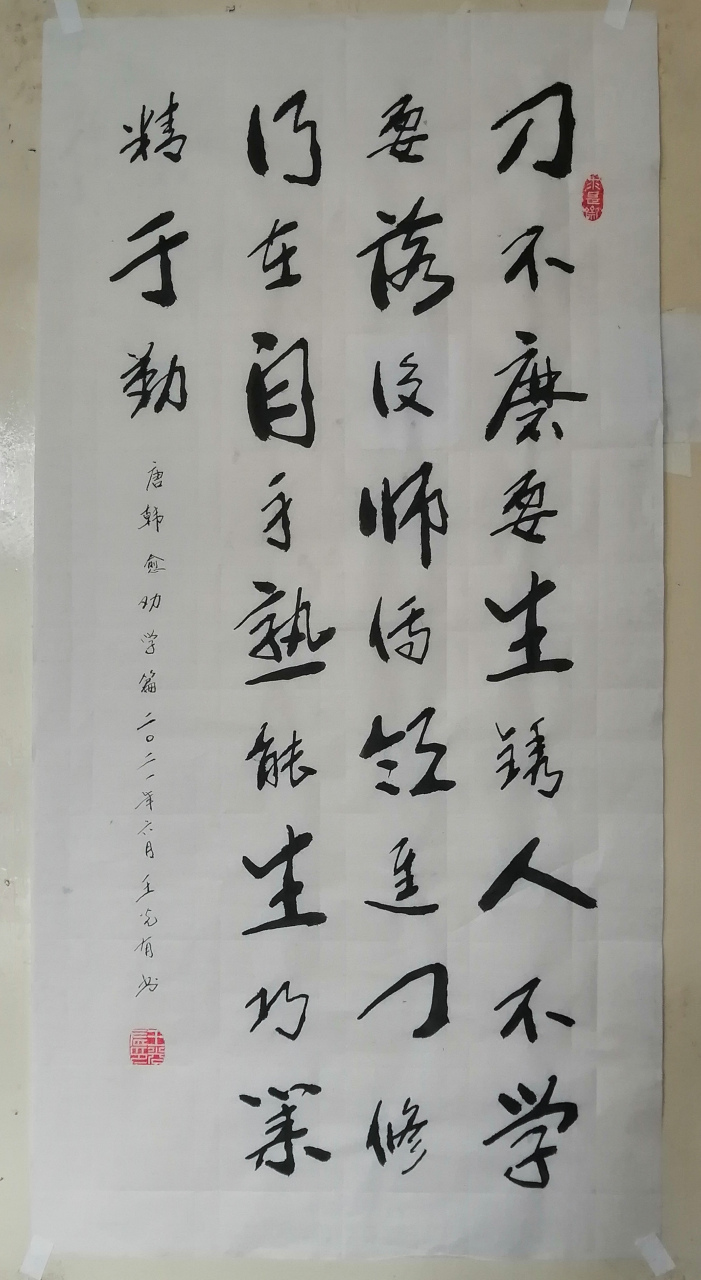 刀不磨要生锈人不学
要落后师傅领进门修
行在自手熟能生巧业
精于勤
唐韩愈劝学篇二〇二一年六月王光有书